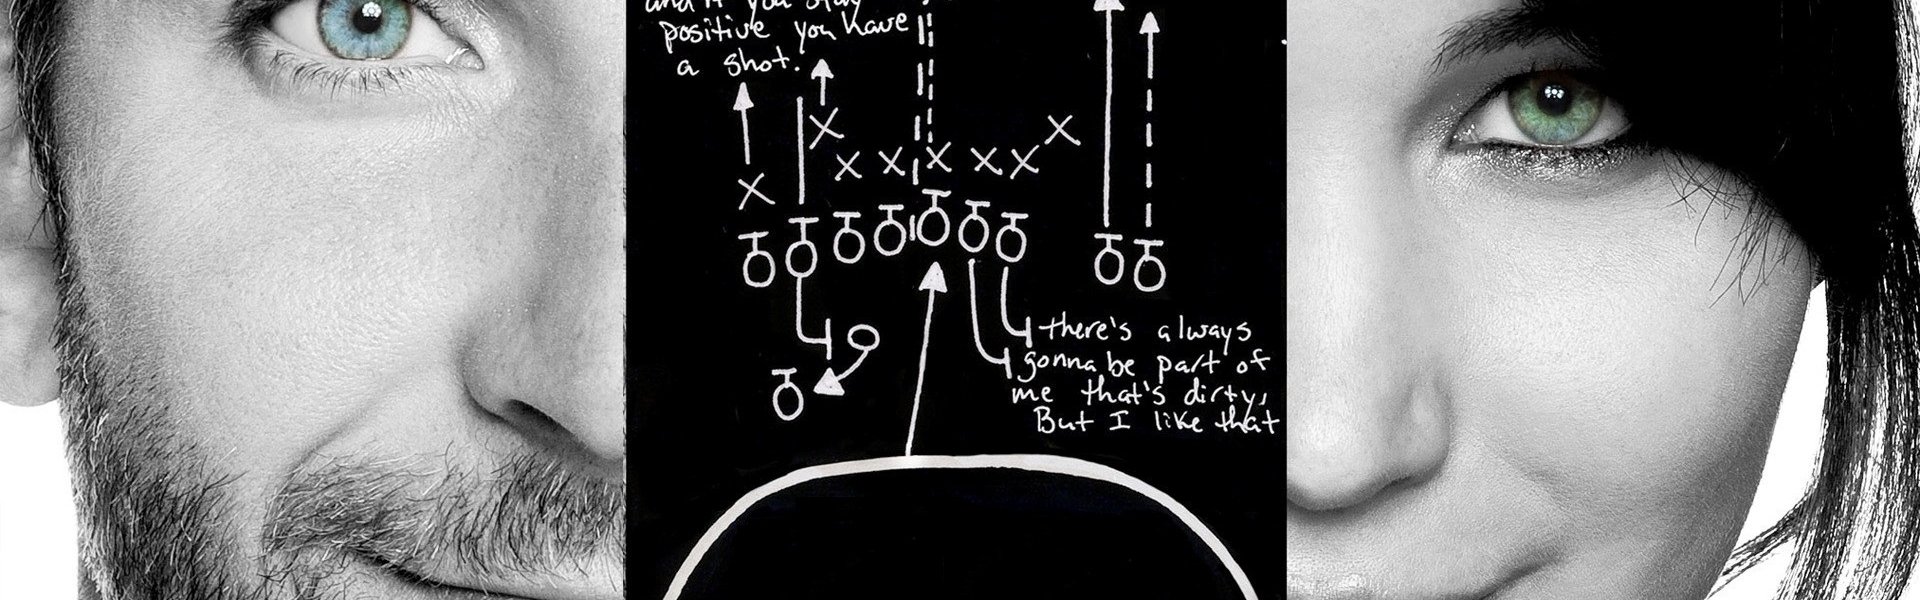 and if you stay
positive you have
a shot.
there's always
gonna be part of
me that's dirty,
But I like that